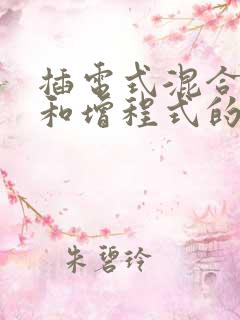 插电式混合
和增程式的
朱碧玲